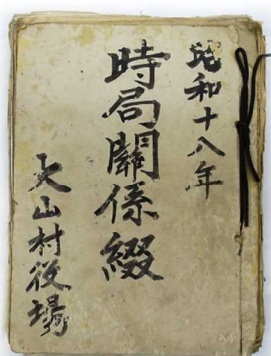 昭和十八年
時局關係綴
大山村役場